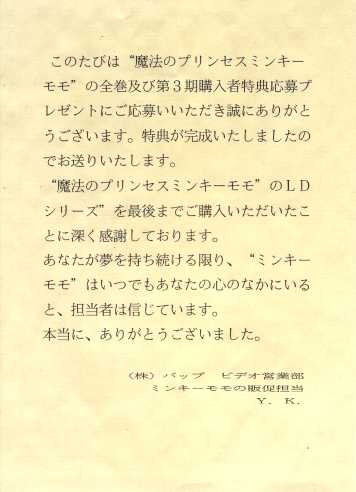 このたびは“魔法のプリンセスミンキー
モモ”の全巻及び第3期購入者特典応募プ
レゼントにご応募いただき誠にありがと
うございます。特典が完成いたしましたの
でお送りいたします。
“魔法のプリンセスミンキーモモ”のLD
シリーズ”を最後までご購入いただいたこ
とに深く感謝しております。
あなたが夢を持ち続ける限り、“ミンキー
モモ”はいつでもあなたの心のなかにいる
と、担当者は信じています。
本当に、ありがとうございました。
(株)バップ ビデオ営業部
ミンキーモモの販促担当
Y. K.